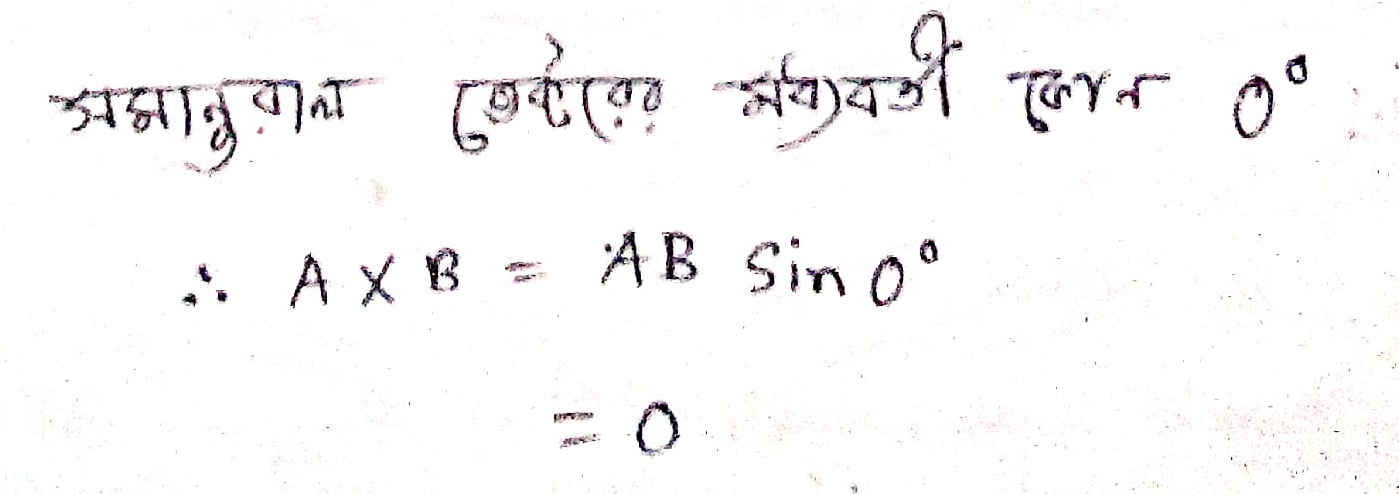 সমান্তরাল ভেক্টরের মধ্যবর্তী কোন 0°
∴ A × B = AB Sin 0°
= 0